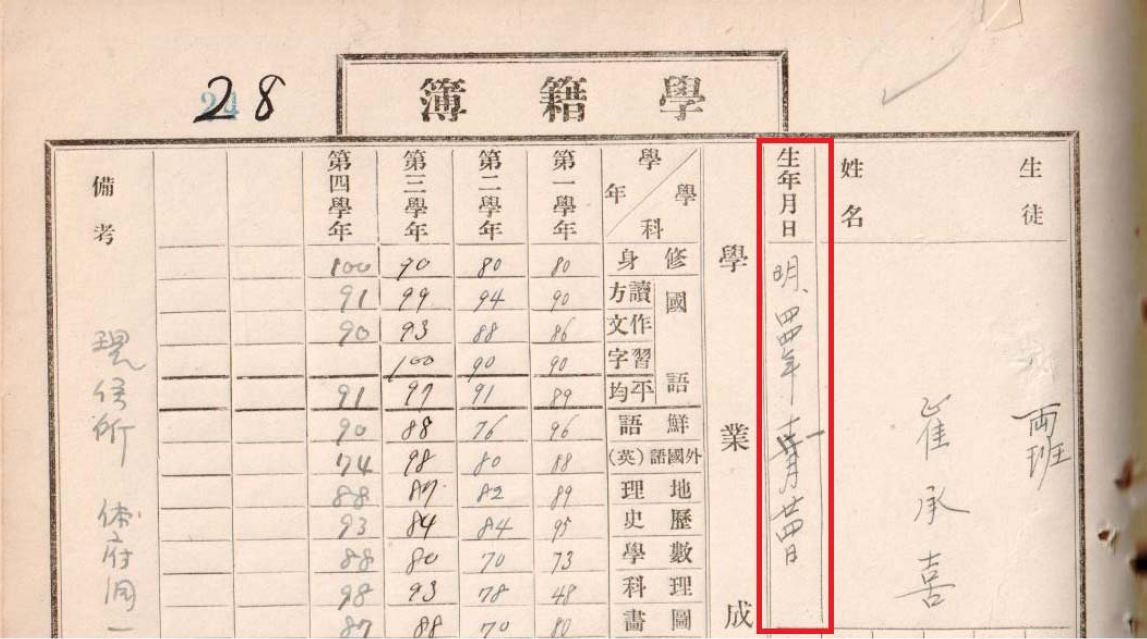 學籍簿
28
24
生徒
兩班
姓名
崔承喜
生年月日
明、四四年十一月廿四日
學業成
學年
學科
國語
修身
讀方
作文
習字
平均
鮮語
外國語(英)
地理
歷史
數學
理科
圖畫
第一學年
80
90
86
90
89
96
88
89
95
73
48
80
第二學年
80
94
88
90
91
76
80
82
84
70
78
70
第三學年
90
99
93
100
97
88
98
87
84
80
93
88
第四學年
100
91
90
91
90
74
88
93
88
98
87
備考
現住所 体府洞一